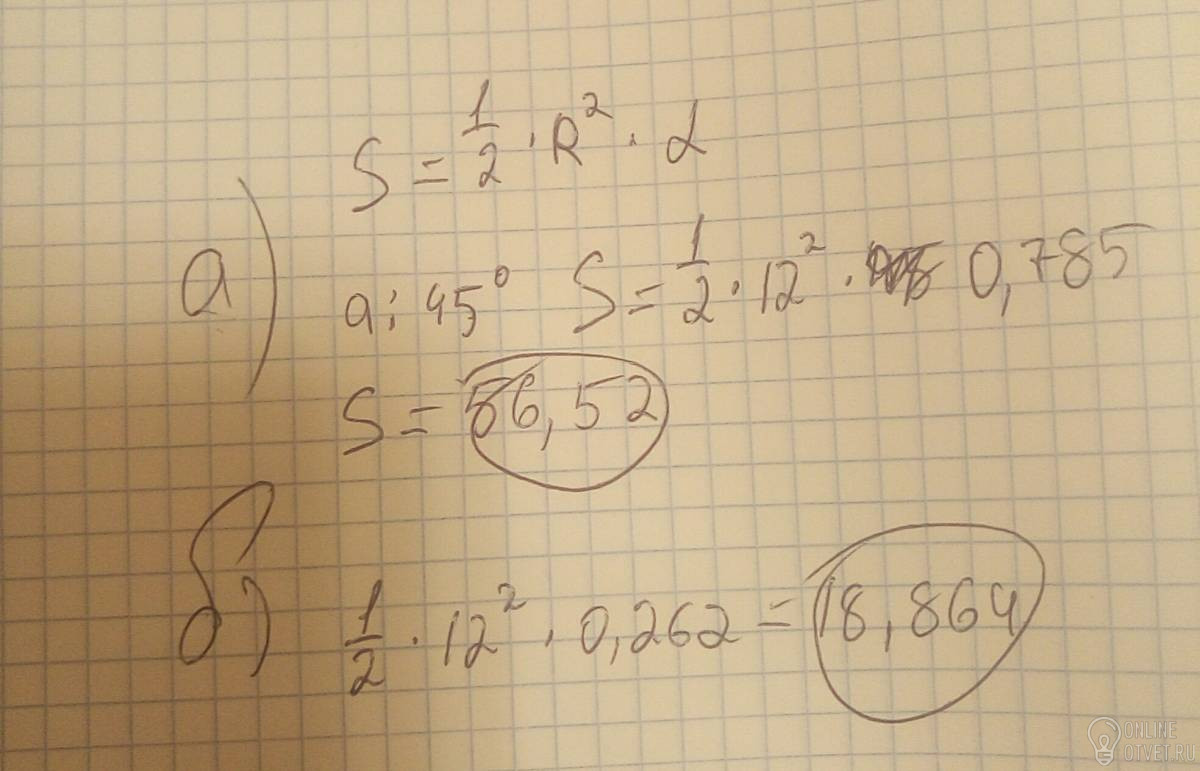 S = 1/2 · R² · α
а) a: 45° S = 1/2 · 12² · 0,785
S = 56,52
б) 1/2 · 12² · 0,262 = 18,864
ONLINE
OTVET.RU